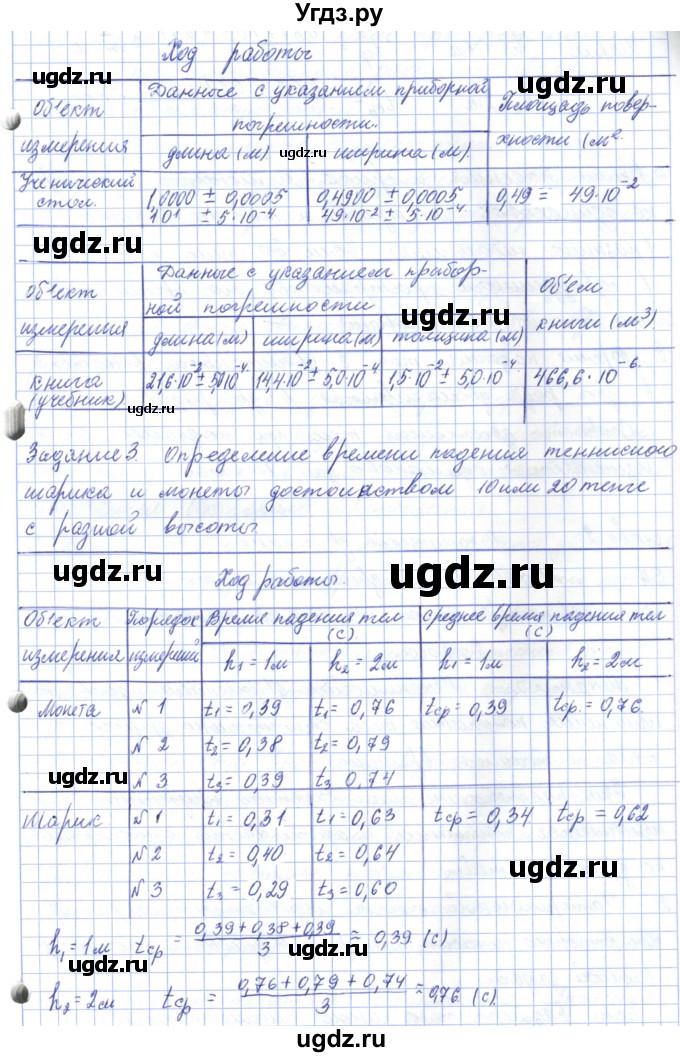 Угдз.ру
Ход работы
ugdz.ru
ugdz.ru
Объект измерения
Данные с указанием приборной погрешности.
Площадь поверхности (м²
длина (м)
ugdz.ru
ширина (м).
Ученический стол.
1,0000 ± 0,0005
0,4900 ± 0,0005
0,49 = 49·10⁻²
1·10¹ ± 5·10⁻⁴
49·10⁻² ± 5·10⁻⁴
ugdz.ru
ugdz.ru
Объект измерения
Данные с указанием приборной погрешности
Объем книги (м³)
ugdz.ru
длина (м)
ширина (м)
толщина (м)
книга (учебник)
21,6·10⁻² ± 5,0·10⁻⁴
14,4·10⁻² ± 5,0·10⁻⁴
1,5·10⁻² ± 5,0·10⁻⁴
466,6·10⁻⁶
ugdz.ru
Задание 3. Определение времени падения теннисного
шарика и монеты достоинством 10 или 20 тенге
с разной высоты
ugdz.ru
Ход работы.
ugdz.ru
Объект измерения
Порядок измерений
Время падения тел (с)
среднее время падения тел (с)
h₁ = 1м
h₂ = 2м
h₁ = 1м
h₂ = 2м
Монета
№ 1
t₁ = 0,39
t₁ = 0,76
tср = 0,39
tср. = 0,76.
№ 2
t₂ = 0,38
t₂ = 0,79
ugdz.ru
ugdz.ru
№ 3
t₃ = 0,39
t₃ 0,74
Шарик
№ 1
t₁ = 0,31
t₁ = 0,63
tср = 0,34
tср = 0,62
№ 2
t₂ = 0,40
t₂ = 0,64
ugdz.ru
№ 3
t₃ = 0,29
t₃ = 0,60
h₁ = 1м tср = (0,39 + 0,38 + 0,39)/3 ≈ 0,39 (с)
ugdz.ru
ugdz.ru
h₂ = 2м tср = (0,76 + 0,79 + 0,74)/3 ≈ 0,76 (с).
ugdz.ru
ugdz.ru